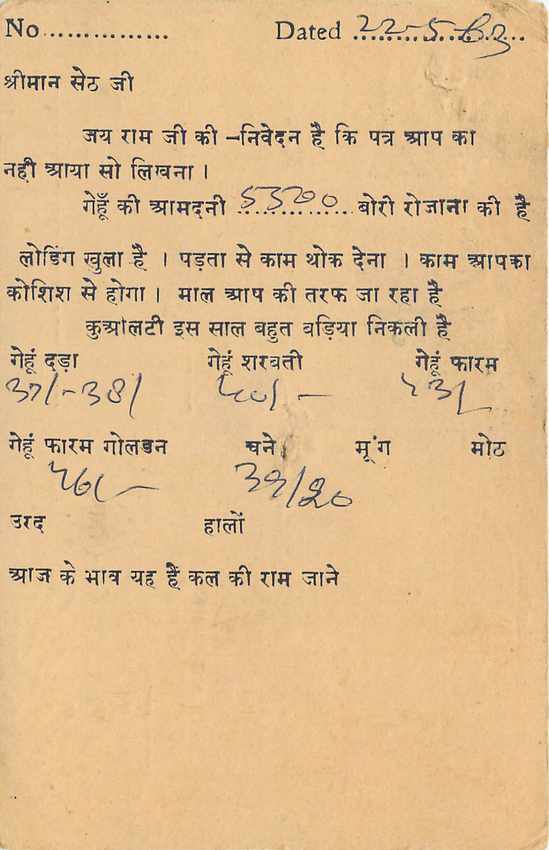 No............... Dated 22-5-63
श्रीमान सेठ जी
जय राम जी की –निवेदन है कि पत्र आप का
नही आया सो लिखना ।
गेहूँ की आमदनी 53200 बोरी रोजाना की है
लोडिंग खुला है । पड़ता से काम थोक देना । काम आपका
कोशिश से होगा । माल आप की तरफ जा रहा है
कुआलटी इस साल बहुत बड़िया निकली है
गेहूं दड़ा गेहूं शरबती गेहूं फारम
37/-38/ 40/- 43/
गेहूं फारम गोलडन चने मूंग मोठ
46/-
उरद हालों
आज के भाव यह हैं कल की राम जाने